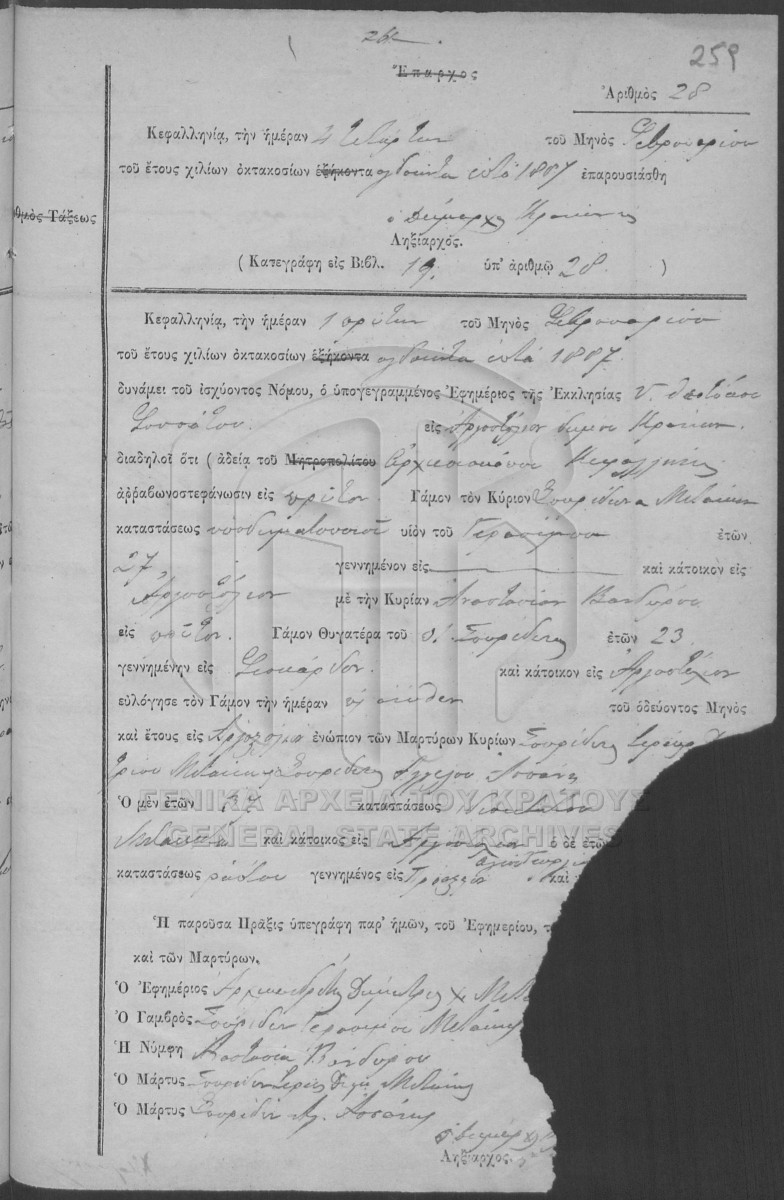 259
Ἔπαρχος
Ἀριθμὸς 28
Κεφαλληνίᾳ, τὴν ἡμέραν 4 τετάρτην τοῦ Μηνὸς Φεβρουαρίου
τοῦ ἔτους χιλίων ὀκτακοσίων ἑξήκοντα ὀγδοήκοντα ἑπτά 1887 ἐπαρουσιάσθη
θμὸς Τάξεως
ὁ Δήμαρχος Κρανίων
Ληξίαρχος.
( Κατεγράφη εἰς Βιβλ. 19. ὑπ' ἀριθμῷ 28 )
Κεφαλληνίᾳ, τὴν ἡμέραν 1 πρώτην τοῦ Μηνὸς Φεβρουαρίου
τοῦ ἔτους χιλίων ὀκτακοσίων ἑξήκοντα ὀγδοήκοντα ἑπτά 1887
δυνάμει τοῦ ἰσχύοντος Νόμου, ὁ ὑπογεγραμμένος Ἐφημέριος τῆς Ἐκκλησίας
εἰς Ἀργοστόλιον δήμου Κρανίων
διαδηλοῖ ὅτι ( ἀδείᾳ τοῦ Μητροπολίτου Ἀρχιεπισκόπου Κεφαλληνίας
ἀῤῥαβωνοστεφάνωσιν εἰς πρῶτον Γάμον τὸν Κύριον Σπυρίδωνα Μεταξᾶν
καταστάσεως ὑποδηματοποιοῦ υἱὸν τοῦ Γερασίμου ἐτῶν
27 γεννημένον εἰς καὶ κάτοικον εἰς
Ἀργοστόλιον μὲ τὴν Κυρίαν Ἀναστασίαν Βανδώρου
εἰς πρῶτον. Γάμον Θυγατέρα τοῦ Σπυρίδωνος ἐτῶν 23
γεννημένην εἰς Φισκάρδον. καὶ κάτοικον εἰς Ἀργοστόλιον
εὐλόγησε τὸν Γάμον τὴν ἡμέραν τοῦ ὁδεύοντος Μηνὸς
καὶ ἔτους εἰς Ἀργοστόλιον ἐνώπιον τῶν Μαρτύρων Κυρίων Σπυρίδωνος
Μεταξᾶ Σπυρίδωνος
Ὁ μὲν ἐτῶν καταστάσεως
καὶ κάτοικος εἰς Ἀργοστόλιον ὁ δὲ ἐτῶ
καταστάσεως ῥάπτου γεννημένος εἰς καὶ
ΓΕΝΙΚΑ ΑΡΧΕΙΑ ΤΟΥ ΚΡΑΤΟΥΣ
GENERAL STATE ARCHIVES
Ἡ παροῦσα Πρᾶξις ὑπεγράφη παρ' ἡμῶν, τοῦ Ἐφημερίου, τ
καὶ τῶν Μαρτύρων.
Ὁ Ἐφημέριος Ἀρχιμανδρίτης Δημήτριος Μετα
Ὁ Γαμβρὸς Σπυρίδων Γερασίμου Μεταξᾶς
Ἡ Νύμφη Ἀναστασία Βανδώρου
Ὁ Μάρτυς Σπυρίδων Μεταξᾶς
Ὁ Μάρτυς Σπυρίδων
ὁ δήμαρχος
Ληξίαρχος.